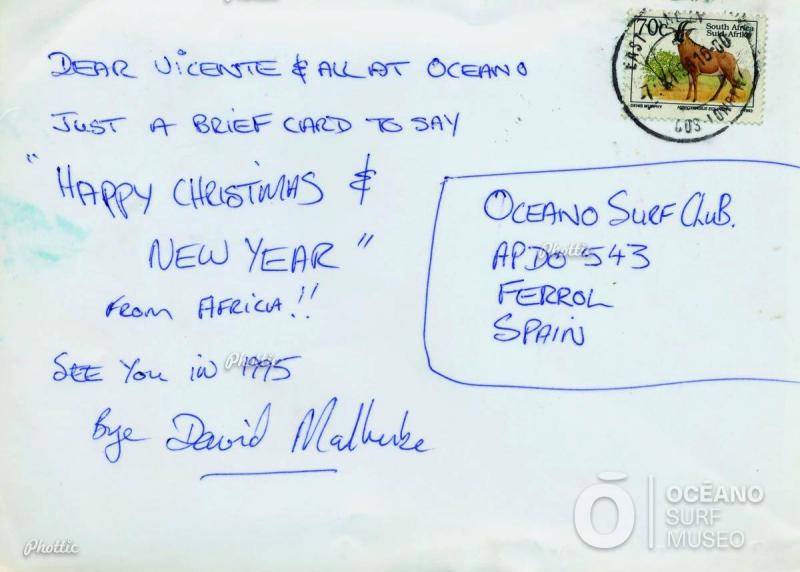 DEAR VICENTE & ALL AT OCEANO
JUST A BRIEF CARD TO SAY
"HAPPY CHRISTMAS &
NEW YEAR"
FROM AFRICA!!
SEE YOU IN 1995
Bye David Malherbe
70c South Africa
Suid-Afrika
EAST LONDON
OOS-LONDEN
OCEANO SURF CLUB.
APDO 543
FERROL
SPAIN
Phottic
Phottic
Phottic
Phottic
OCÉANO
SURF
MUSEO